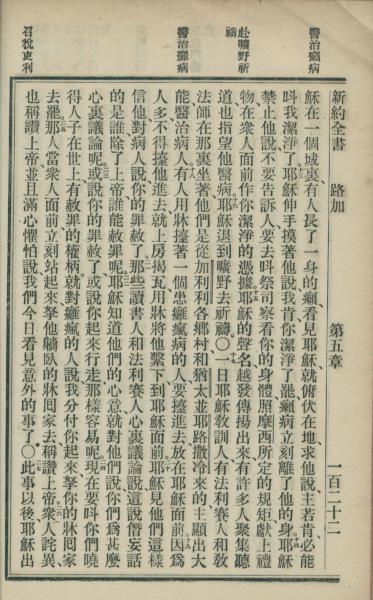 新約全書 路加 第五章 一百二十二
醫治癩病
穌在一個城裏有人長了一身的癩看見耶穌就俯伏在地求他說主若肯必能
呌我潔淨了耶穌伸手摸著他說我肯你潔淨了罷癩病立刻離了他的身耶穌
禁止他說不要告訴人要去呌祭司察看你的身體照摩西所定的規矩獻上禮
物在衆人面前作你潔淨的憑據耶穌的聲名越發傳揚出來有許多人聚集聽
赴曠野祈
禱
道也指望他醫病耶穌退到曠野去祈禱〇一日耶穌敎訓人有法利賽人和敎
法師在那裏坐著他們是從加利利各鄉村和猶太並耶路撒冷來的主顯出大
醫治癱病
能醫治病人有人用牀擡著一個患癱瘋病的人要擡進去放在耶穌面前因爲
人多不得擡他進去就上房揭瓦用牀將他繫下到耶穌面前耶穌見他們這樣
信他對病人說你的罪赦了那些讀書人和法利賽人心裏議論說這說僭妄話
的是誰除了上帝誰能赦罪呢耶穌知道他們的心意就對他們說你們爲甚麽
心裏議論呢或說你的罪赦了或說你起來行走那樣容易呢現在要呌你們曉
得人子在世上有赦罪的權柄就對癱瘋的人說我分付你起來拏你的牀回家
去罷那人當衆人面前立刻站起來拏他躺臥的牀回家去稱讚上帝衆人詫異
召稅吏利
也稱讚上帝並且滿心懼怕說我們今日看見意外的事了〇此事以後耶穌出